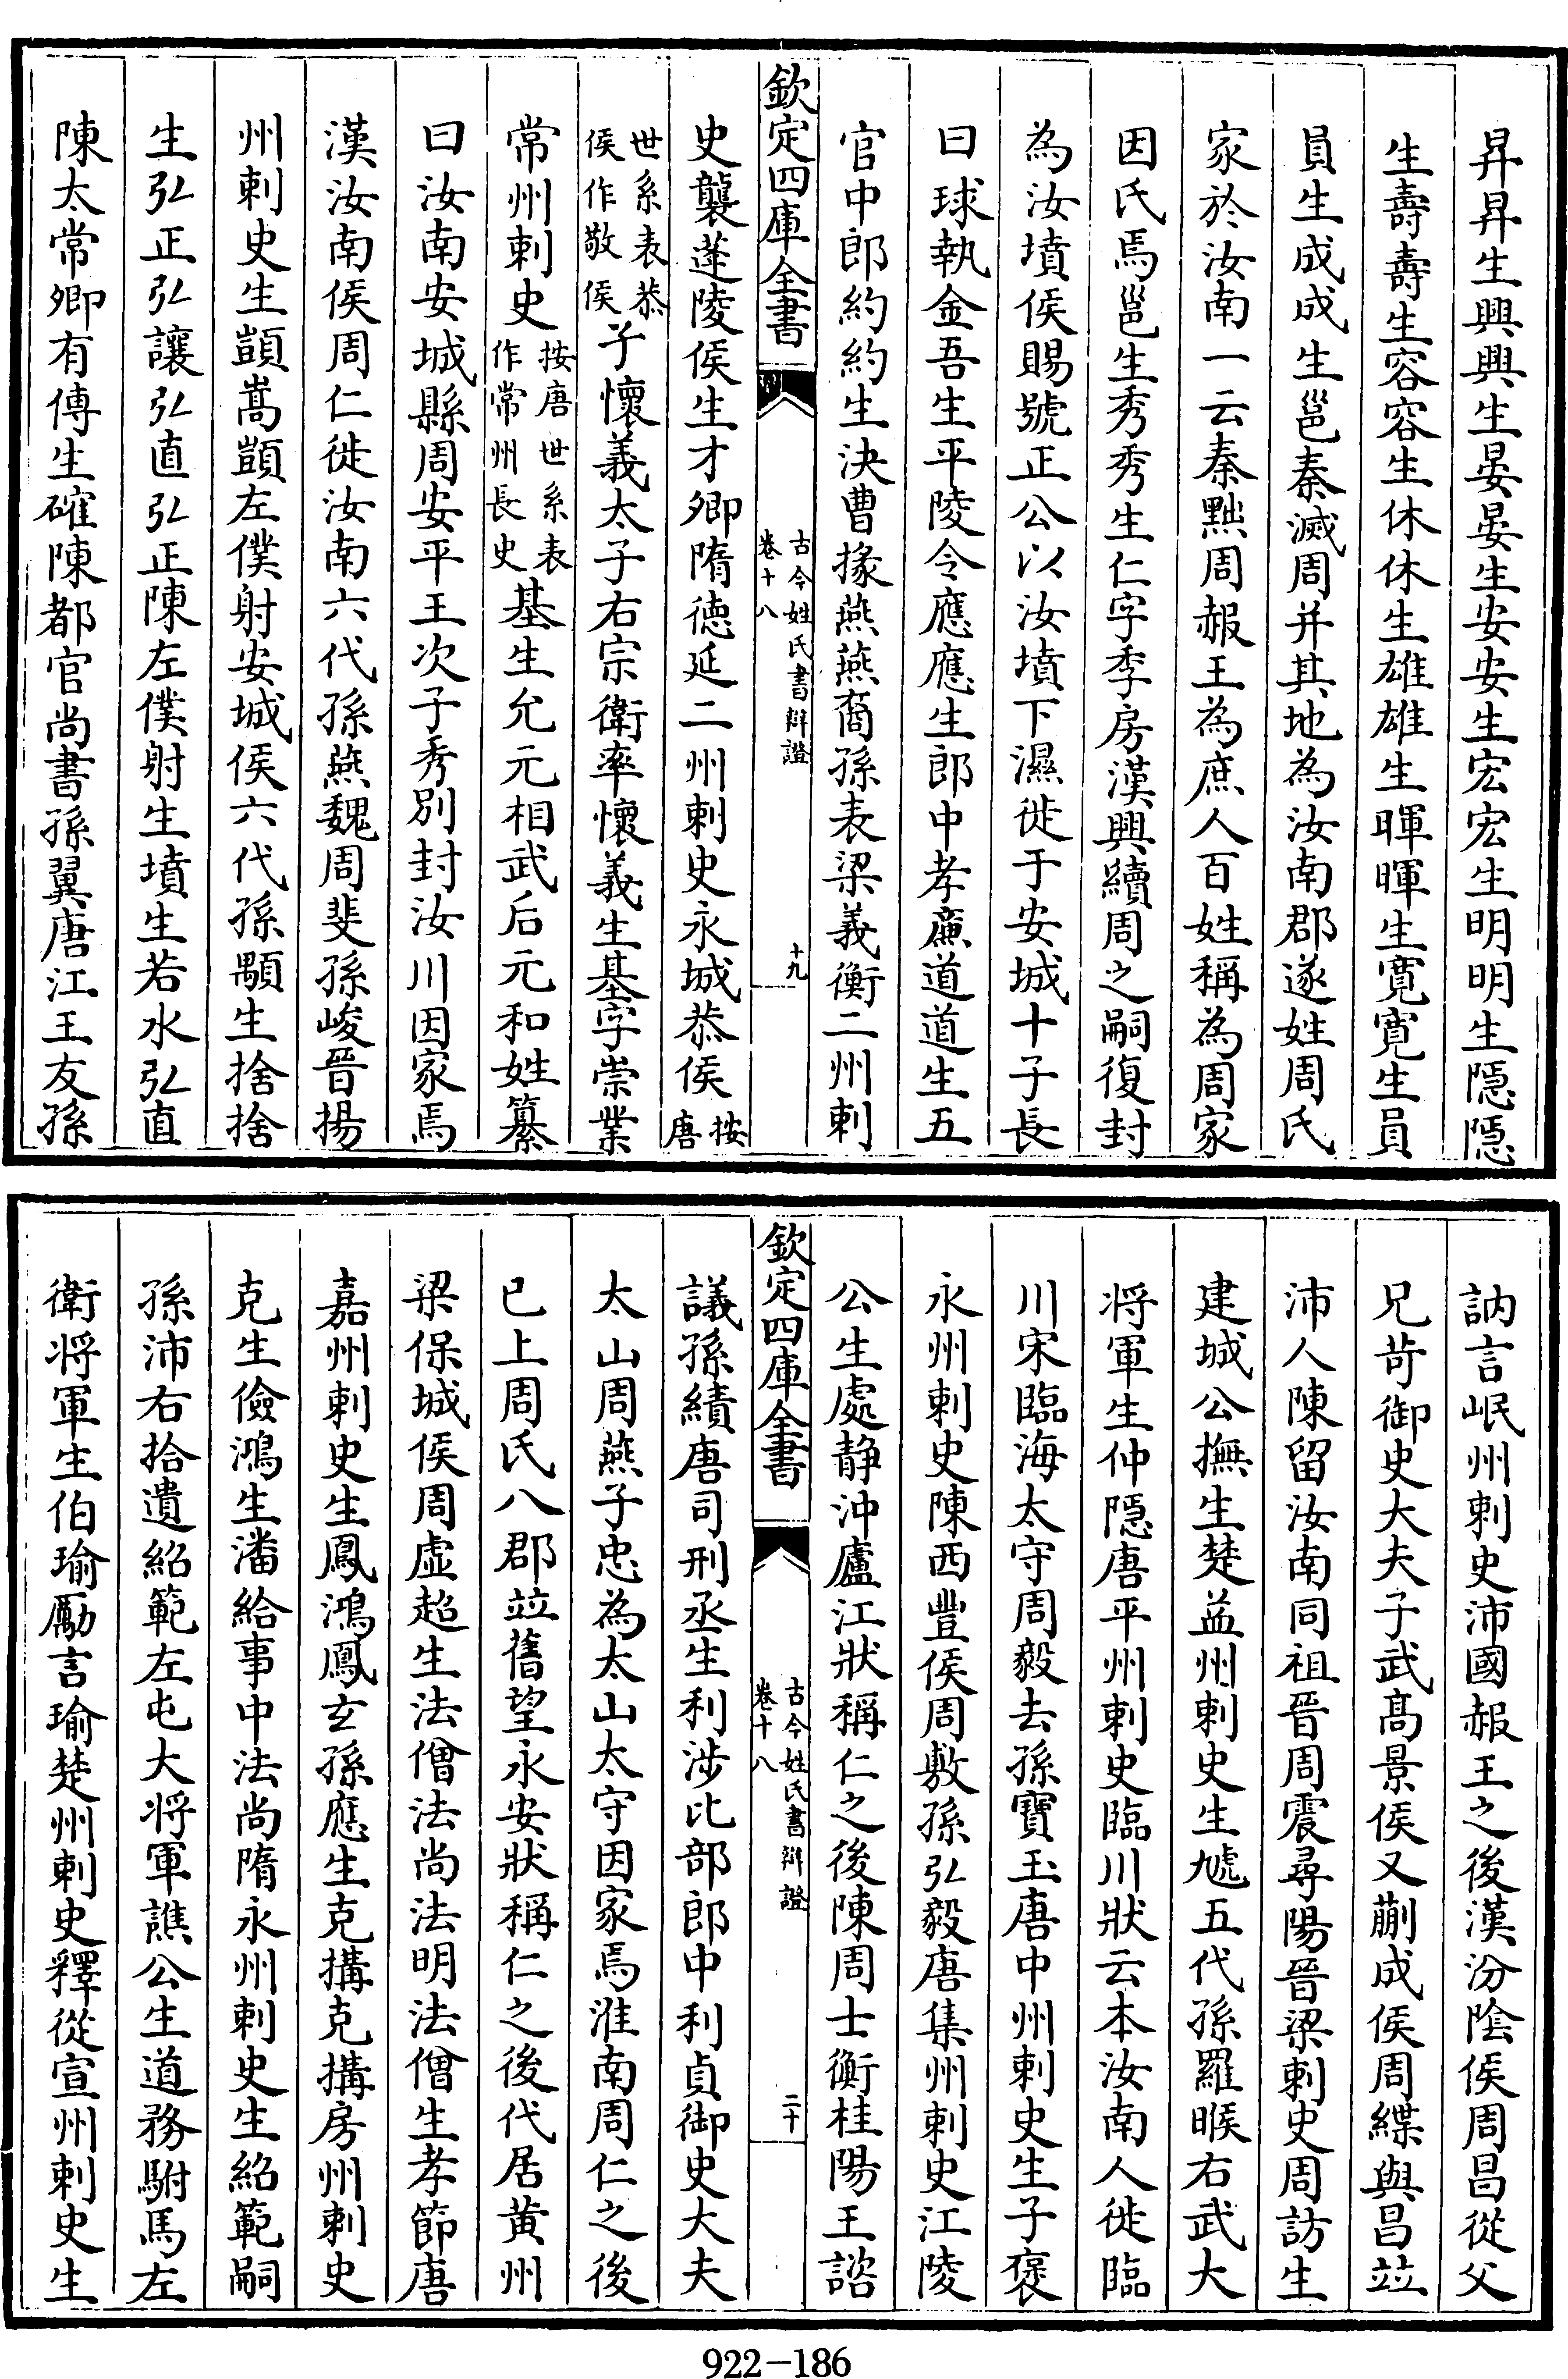 昇昇生興興生晏晏生安安生宏宏生明明生隱隱
生壽壽生容容生休休生雄雄生暉暉生寛寛生員
員生成成生邕秦滅周并其地為汝南郡遂姓周氏
家於汝南一云秦黜周赧王為庶人百姓稱為周家
因氏焉邕生秀秀生仁字季房漢興續周之嗣復封
為汝墳侯賜號正公以汝墳下濕徙于安城十子長
曰球執金吾生平陵令應應生郎中孝㢘道道生五
官中郎約約生決曹掾燕燕裔孫表梁義衡二州刺
欽定四庫全書
古今姓氏書辯證
卷十八
十九
史襲蓬陵侯生才卿隋徳延二州刺史永城恭侯按唐
世系表恭侯作敬侯子懷義太子右宗衛率懷義生基字崇業
常州刺史按唐世系表作常州長史基生允元相武后元和姓纂
曰汝南安城縣周安平王次子秀別封汝川因家焉
漢汝南侯周仁徙汝南六代孫燕魏周斐孫峻晉揚
州刺史生顗嵩顗左僕射安城侯六代孫顒生捨捨
生弘正弘讓弘直弘正陳左僕射生墳生若水弘直
陳太常卿有傳生確陳都官尚書孫翼唐江王友孫
訥言岷州刺史沛國赧王之後漢汾陰侯周昌從父
兄苛御史大夫子武髙景侯又蒯成侯周緤與昌竝
沛人陳留汝南同祖晉周震尋陽晉梁刺史周訪生
建城公撫生楚益州刺史生虓五代孫羅睺右武大
將軍生仲隱唐平州刺史臨川狀云本汝南人徙臨
川宋臨海太守周毅去孫寶玉唐中州刺史生子褒
永州刺史陳西豐侯周敷孫弘毅唐集州刺史江陵
公生處静沖廬江狀稱仁之後陳周士衡桂陽王諮
欽定四庫全書
古今姓氏書辯證
卷十八
二十
議孫績唐司刑丞生利渉比部郎中利貞御史大夫
太山周燕子忠為太山太守因家焉淮南周仁之後
已上周氏八郡竝舊望永安狀稱仁之後代居黄州
梁保城侯周虛超生法僧法尚法明法僧生孝節唐
嘉州刺史生鳳鴻鳳玄孫應生克搆克搆房州刺史
克生儉鴻生潘給事中法尚隋永州刺史生紹範嗣
孫沛右拾遺紹範左屯大將軍譙公生道務駙馬左
衛將軍生伯瑜勵言瑜楚州刺史釋從宣州刺史生
922-186